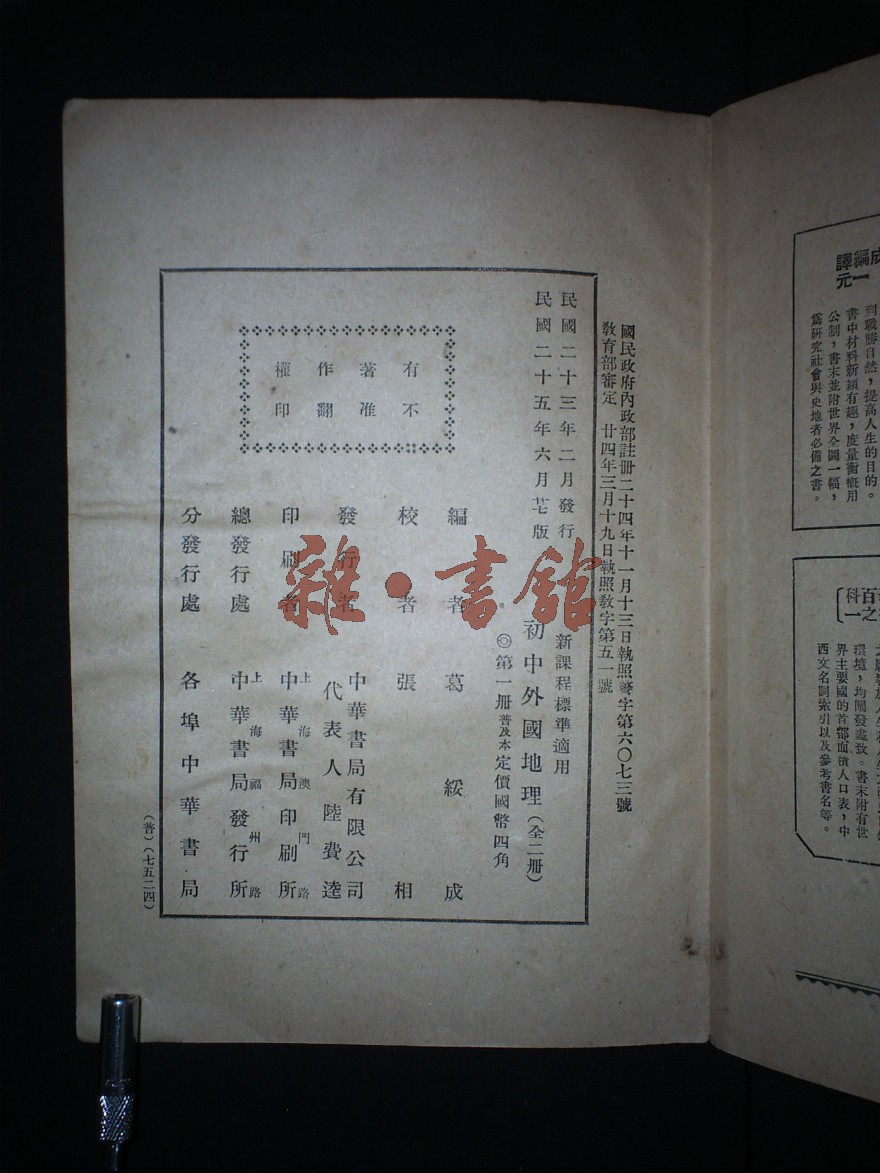 成
編一
譯元
到戰勝自然，提高人生的目的。
書中材料新穎有趣，度量衡概用
公制，書末並附世界全圖一幅，
爲研究社會與史地者必備之書。
百之
科一
環境，均闡發盡致。書末附有世
界主要國的首都面積人口表，中
西文名詞索引以及參考書名等。
國民政府內政部註冊二十四年十一月十三日執照警字第六〇七三號
敎育部審定 廿四年三月十九日執照敎字第五一號
民國二十三年二月發行
民國二十五年六月廿七版
有著作權
不准翻印
新課程標準適用
初中外國地理（全二册）
◎第一册普及本定價國幣四角
編者 葛綏成
校者 張相
發行者 中華書局有限公司
代表人 陸費逵
印刷者 上海澳門路
中華書局印刷所
總發行處 上海福州路
中華書局發行所
分發行處 各埠中華書局
（普）（七五二四）
雜·書館